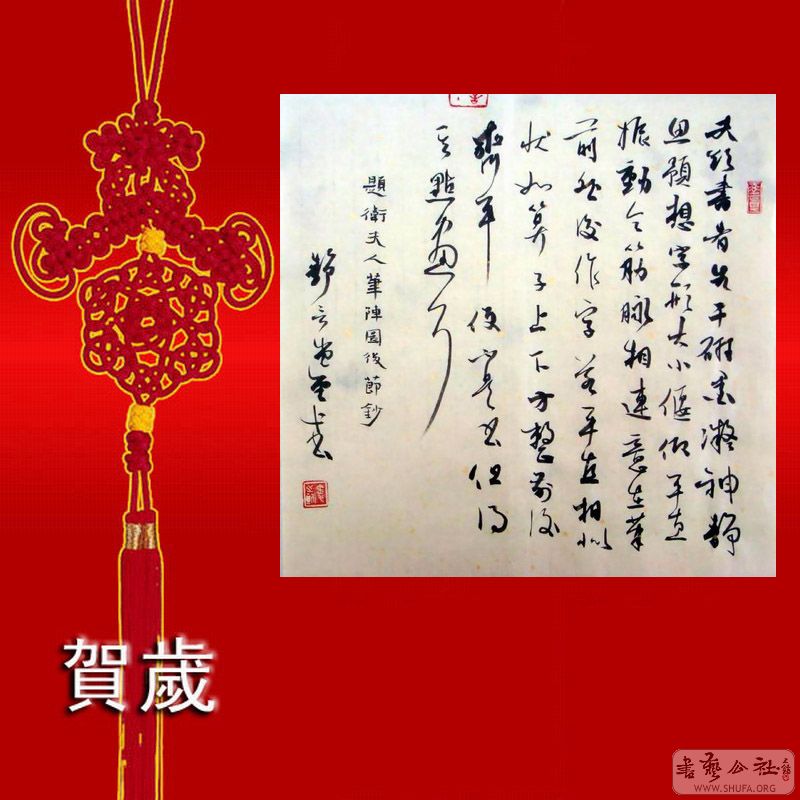 夫欲書者先干研墨凝神靜
思預想字形大小偃仰平直
振動令筋脈相連意在筆
前然後作字若平直相似
狀如算子上下方整前後
齊平便不是書但得
其點畫耳
題衛夫人筆陣圖後節鈔
賀歲
書藝公社
WWW.SHUFA.ORG